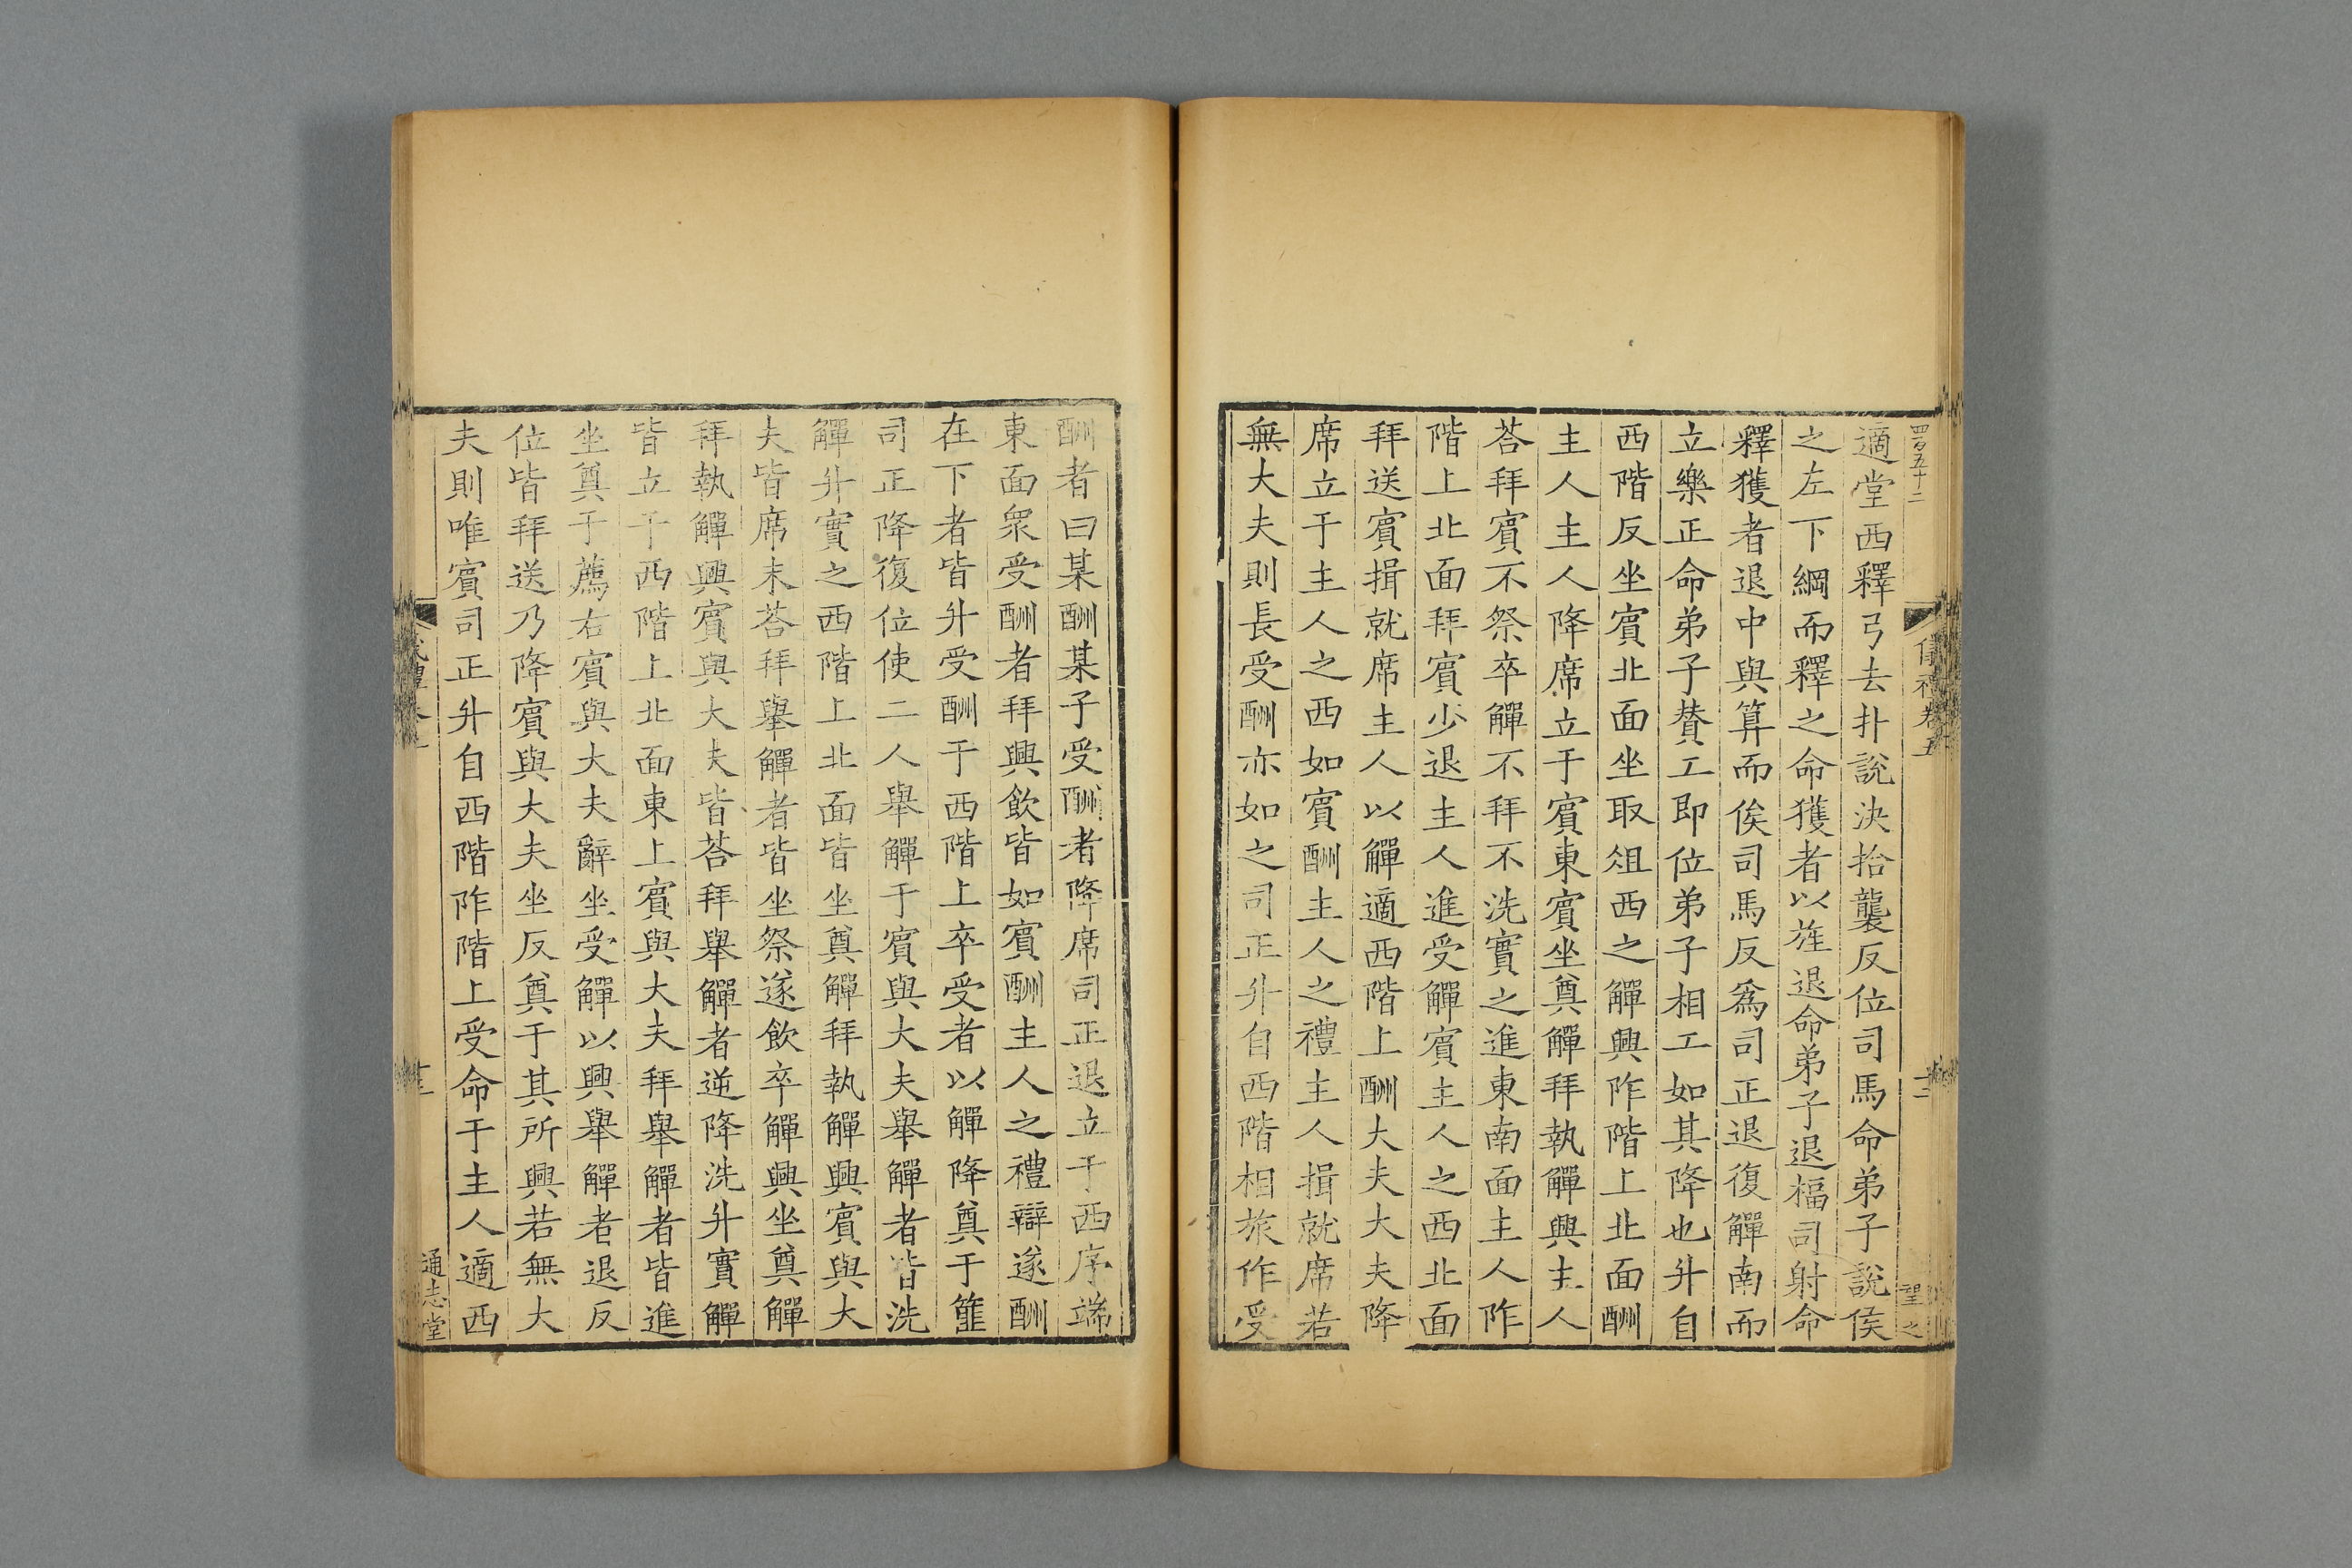 四百五十二
儀禮卷五
十二
望之
適堂西釋弓去扑說決拾襲反位司馬命弟子說侯
之左下綱而釋之命獲者以旌退命弟子退楅司射命
釋獲者退中與算而俟司馬反爲司正退復觶南而
立樂正命弟子賛工即位弟子相工如其降也升自
西階反坐賔北面坐取俎西之觶興阼階上北面酬
主人主人降席立于賔東賔坐奠觶拜執觶興主人
荅拜賔不祭卒觶不拜不洗實之進東南面主人阼
階上北面拜賔少退主人進受觶賔主人之西北面
拜送賔揖就席主人以觶適西階上酬大夫大夫降
席立于主人之西如賔酬主人之禮主人揖就席若
無大夫則長受酬亦如之司正升自西階相旅作受
酬者曰某酬某子受酬者降席司正退立于西序端
東面衆受酬者拜興飲皆如賔酬主人之禮辯遂酬
在下者皆升受酬于西階上卒受者以觶降奠于篚
司正降復位使二人舉觶于賔與大夫舉觶者皆洗
觶升實之西階上北面皆坐奠觶拜執觶興賔與大
夫皆席末荅拜舉觶者皆坐祭遂飲卒觶興坐奠觶
拜執觶興賔與大夫皆荅拜舉觶者逆降洗升實觶
皆立于西階上北面東上賔與大夫拜舉觶者皆進
坐奠于薦右賔與大夫辭坐受觶以興舉觶者退反
位皆拜送乃降賔與大夫坐反奠于其所興若無大
夫則唯賔司正升自西階阼階上受命于主人適西
通志堂